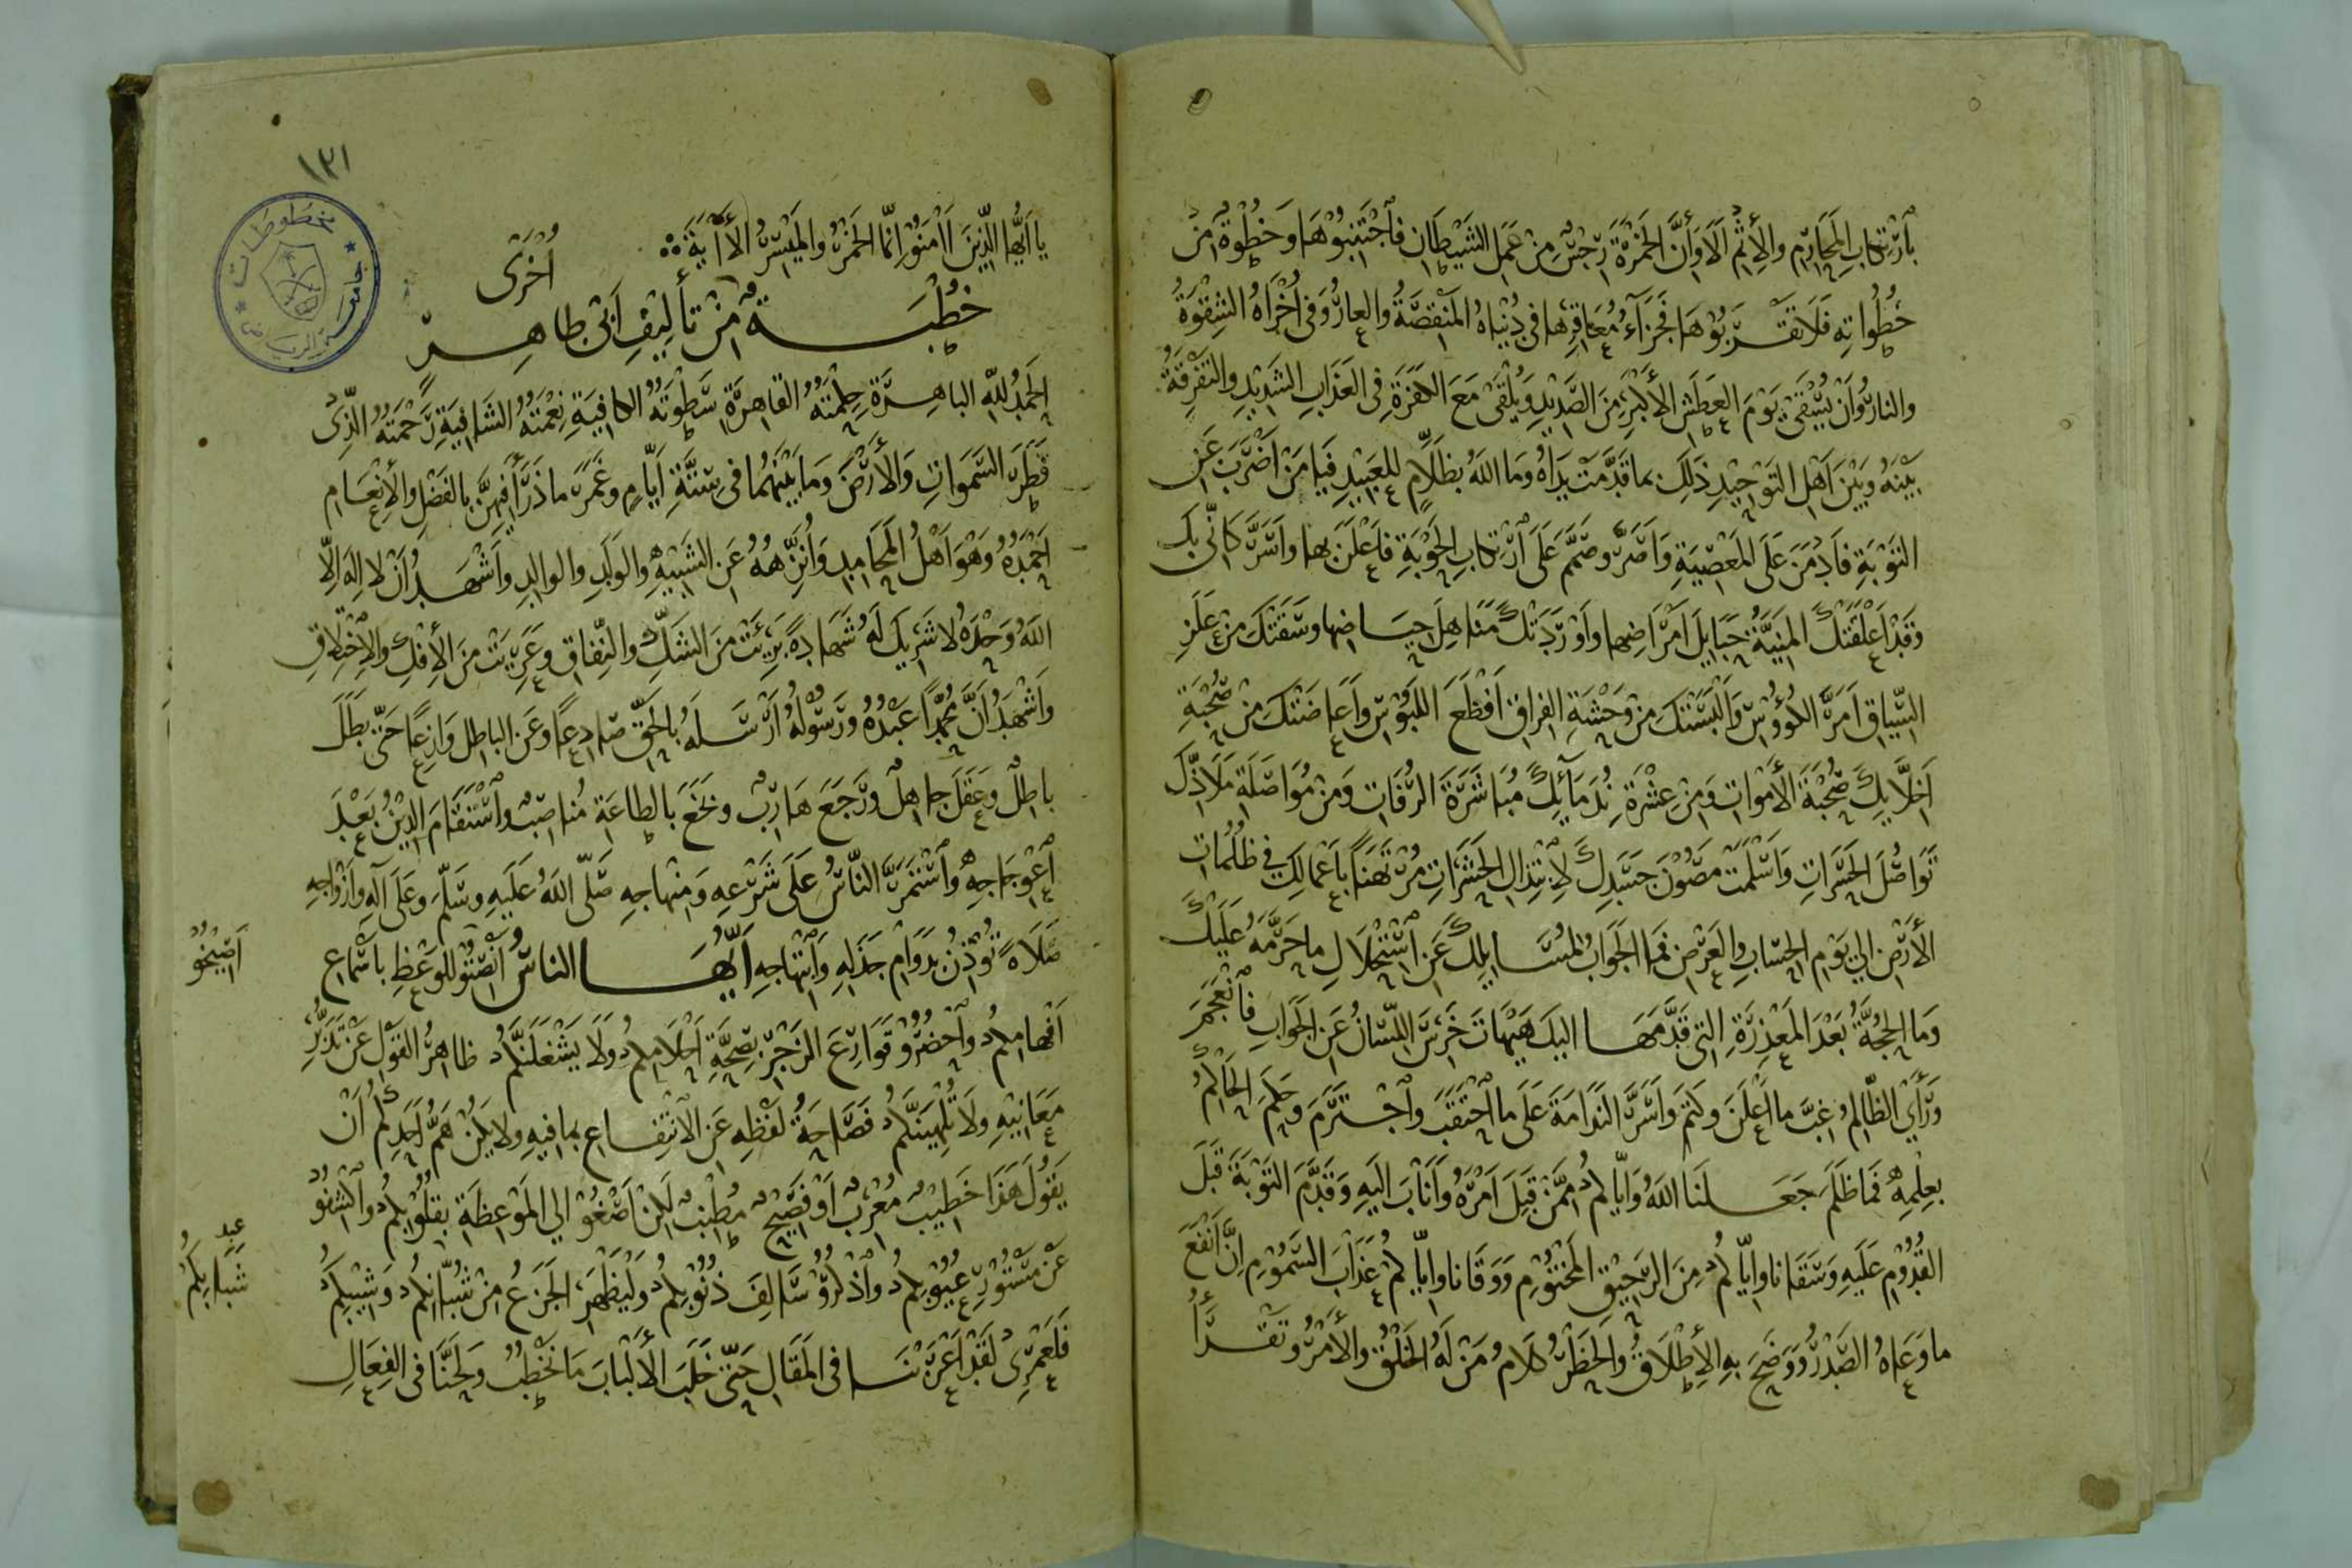 بِٱرْتِكابِ المَحَارِمِ والإِثْمِ أَلَا وَأَنَّ الخَمْرَةَ رِجْسٌ مِنْ عَمَلِ الشَيْطَانِ فٱجْتَنِبُوْهَا وَخُطْوَةٌ مِنْ
خُطُواتِهِ فَلَا تَقْرَبُوْهَا فَجَزَآءُ مُعَاقِرِها فى دُنْيَاهُ المَنْقَصَةُ والعارُ وَفى أُخْرَاهُ الشِقْوَةُ
والنارُ وَأَنْ يُسْقَىٰ يَوْمَ العَطَشِ الأَكْبَرِ مِنَ الصَّدِيْدِ وَيُلْقَى مَعَ الكَفَرَةِ فِى العَذَابِ الشَدِيْدِ والتَفْرِقَةُ
بَيْنَهُ وَبَيْنَ أَهْلِ التَوْحِيْدِ ذَلِكَ بِمَا قَدَّمَتْ يَدَاهُ وَمَا اللهُ بِظَلَّامٍ لِلْعَبِيْدِ فَيَا مَنْ أَضْرَبَ عَنِ
التَوْبَةِ فَأَدْمَنَ عَلَى المَعْصِيَةِ وَأَصَرَّ وصَمَّمَ عَلَى ٱرْتِكابِ الحَوْبَةِ فَأَعْلَنَ بها وأَسَرَّ كَأَنِّى بِكَ
وَقَدْ أَعْلَقَتْكَ المَنِيَّةُ حَبَايِلَ أَمْرَاضِها وأَوْرَدَتْكَ مَنَاهِلَ حِيَاضِها وسَقَتْكَ مِنْ عَلَزِ
السِّيَاقِ أَمَرَّ الكُؤُوْسِ وَأَلْبَسَتْكَ مِنْ وَحْشَةِ الفِراقِ أَفْظَعَ اللَبُوْسِ وأَعَاضَتْكَ مِنْ صُحْبَةِ
أَخِلَّايِكَ صُحْبَةَ الأَمْوَاتِ وَمِنْ عِشْرَةِ نُدَمَآئِكَ مُبَاشَرَةَ الرُفَاتِ وَمِنْ مُوَاصَلَةِ مَلَاذِّكَ
تَوَاصُلَ الحَسَرَاتِ وَأَسْلَمَتْ مَصُوْنَ جَسَدِكَ لِٱبْتِذَالِ الحَشَرَاتِ مُرْتَهَنًا بِأَعْمَالِكَ فِى ظُلُمَاتِ
الأَرْضِ إلى يَوْمِ الحِسَابِ والعَرْضِ فَمَا الجَوَابُ لمُسَايِلِكَ عَنِ ٱسْتِحْلَالِ ما حَرَّمَهُ عَلَيْكَ
وَمَا الحُجَّةُ بُعْدَ المَعْذِرَةِ التى قَدَّمَهَا اليكَ هَيْهَاتَ خَرِسَ اللِسَانُ عَنِ الجَوَابِ فَٱنْعَجَمَ
وَرَأَى الظَالِمُ غِبَّ ما أَعْلَنَ وكَتَمَ وَأَسَرَّ النَدَامَةَ عَلَى ما ٱحْتَقَبَ وٱجْتَرَمَ وحَكَمَ الحَاكِمُ
بِعِلْمِهِ فَمَا ظَلَمَ جَعَلَنَا اللهُ وَإِيَّاكُمْ مِمَّنْ قَبِلَ أَمْرَهُ وَأَنَابَ اليَهِ وَقَدَّمَ التَوْبَةَ قَبْلَ
القُدُوْمِ عَلَيهِ وَسَقَانا وإِيَّاكُمْ مِنَ الرَحِيْقِ المَخْتُوْمِ وَوَقَانا وإِيَّاكُمْ عَذَابَ السَمُوْمِ إِنَّ أَنْفَعَ
ما وَعَاهُ الصَدْرُ وَوَضَحَ بِهِ الإِطْلَاقُ والحَظْرُ كَلَامُ مَنْ لَهُ الخَلْقُ والأَمْرُ وتَقْرَأُ
١٣١
يا أَيُّها الذِيْنَ اٰمَنُوْا إِنَّما الخَمْرُ والمَيْسِرُ الأٰيَةَ
خُطْبَةٌ أُخْرَى مِنْ تأْلِيْفِ أَبى طاهِرٍ
الحَمْدُ للهِ الباهِرَةِ حِكْمَتُهُ القاهِرَةِ سَطْوَتُهُ الكافِيَةِ نِعْمَتُهُ الشَافِيَةِ رَحْمَتُهُ الذِى
فَطَرَ السَمَوَاتِ وَالأَرْضَ وَمَا بَيْنَهُمَا فى سِتَّةِ أَيَّامٍ وغَمَرَ ما ذَرَأَ فِيْهِنَّ بالفَضْلِ والإِنْعَامِ
أَحْمَدُهُ وَهْوَ أَهْلُ المَحَامِدِ وَأُنَزِّهُهُ عَنِ الشَبِيْهِ والوَلَدِ والوالِدِ وأَشْهَدُ أَنْ لا إِلَهَ إِلّا
اللهُ وَحْدَهُ لا شَرِيكَ لَهُ شَهادةً بَرِئَتْ مِنَ الشَكِّ والنِّفاقِ وعَرِيَتْ مِنَ الإِفْكِ والإِخْتِلَاقِ
وَأَشْهَدُ أَنَّ مُحَمَّدًا عَبْدُهُ ورَسُوْلُهُ أَرْسَلَهُ بِالحَقِّ صَادِعًا وعَنِ الباطِلِ وَازِعًا حَتَّى بَطَلَ
باطِلٌ وعَقَلَ جاهِلٌ ورَجَعَ هَارِبٌ ونَخَعَ بالطاعَةِ مُناصِبٌ وٱسْتَقَامَ الدِيْنُ بَعْدَ
ٱعْوِجَاجِهِ وٱسْتَمَرَّ النَّاسُ عَلَى شَرْعِهِ وَمِنْهاجِهِ صَلَّى اللهُ عَلَيهِ وسَلَّمَ وعَلَى آلِهِ وأَزْوَاجِهِ
صَلَاةً تُوْذِنُ بِدَوَامِ جَذَلِهِ وَٱبْتِهاجِهِ أَيُّهَا الناسُ أَنْصِتُوْ للوَعْظِ بِأَسْماعِ
أَصِيْخُو
أَفْهامِكُمْ وٱحْضُرُوْ قَوَارِعَ الزَجْرِ بِصِحَّةِ أَحْلَامِكُمْ وَلَا يَشْغَلَنَّكُمْ ظاهِرُ القَوْلِ عَنْ تَدَبُّرِ
مَعَانِيْهِ ولَا تُلْهِيَنَّكُمْ فَصَاحَةُ لَفْظِهِ عَنِ الانْتِفَاعِ بما فيهِ ولا يَكُنْ هَمُّ أَحَدِكُمْ أَنْ
يَقُولَ هَذَا خَطِيْبٌ مُعْرِبٌ أَوْ فَصِيْحٌ مُطْنِبٌ لَكِنْ أَصْغُوْ الى المَوْعِظَةِ بِقُلُوْبِكُمْ وٱكْشِفُوْ
عَنْ مَسْتُوْرِ عُيُوْبِكُمْ وٱذْكُرُوْ سَالِفَ ذُنُوْبِكُمْ وَلْيَظْهَرِ الجَزَعُ مِنْ شُبَّانِكُمْ وَشِيْبِكُمْ
شَبَابِكُمْ
فَلَعَمْرِى لَقَدْ أَعْرَبْنَا فى المَقَالِ حَتّى خَلَبَ الأَلْبَابَ مَا نَخْطُبُ وَلَحَنَّا فى الفِعَالِ
مخطوطات
جامعة الرياض